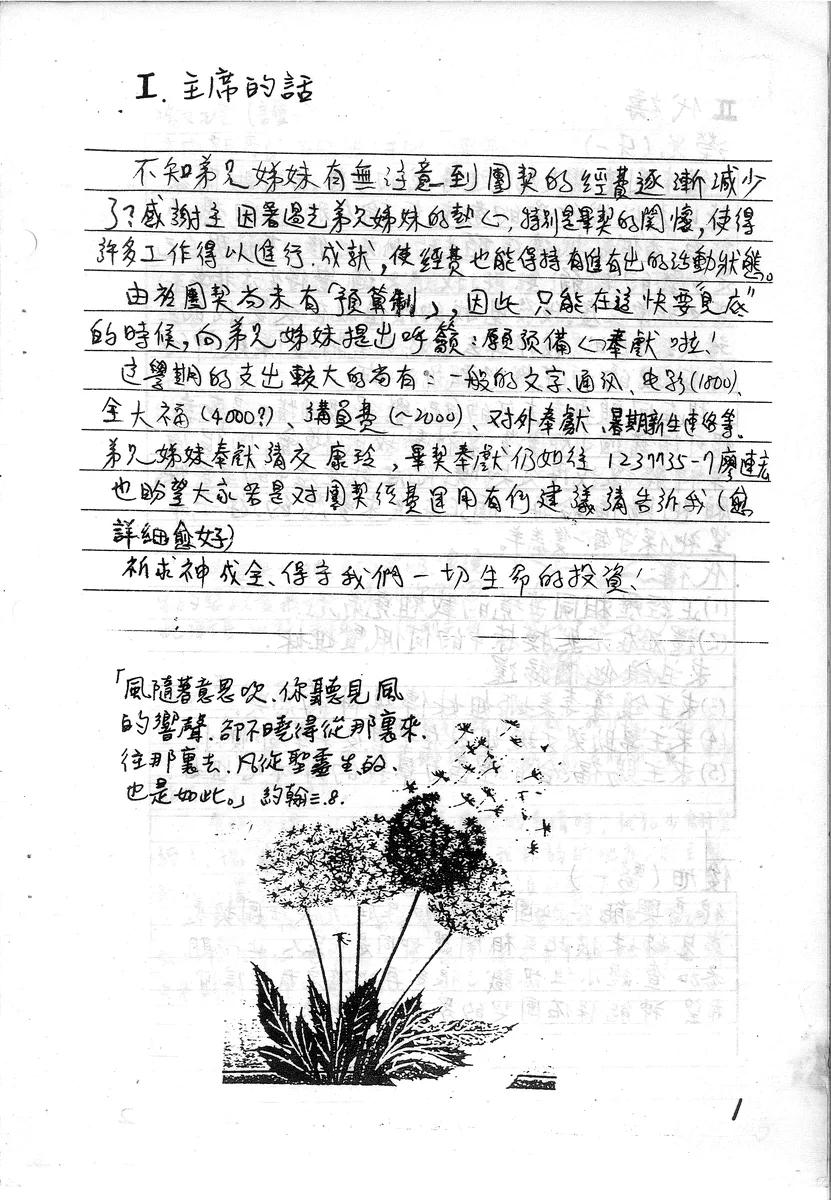 I. 主席的話
不知弟兄姊妹有無注意到團契的經費逐漸減少
了?感謝主因著過去弟兄姊妹的熱心,特別是畢契的関懷,使得
許多工作得以進行.成就,使經費也能保持有進有出的活動狀態。
由於團契尚未有「預算制」,因此只能在這快要"見底"
的時候,向弟兄姊妹提出呼籲:願预備心奉獻啦!
這學期的支出較大的尚有:一般的文字、通訊、电影(1800)、
全大福(4000?)、講員費(~2000)、对外奉獻、暑期新生連絡等.
弟兄姊妹奉獻請交康玲,畢契奉獻仍如往1237735-7廖連宏
也盼望大家若是对團契經費運用有何建議請告訴我(愈
詳細愈好)
祈求神成全、保守我們一切生命的投資!
「風隨著意思吹.你聽見風
的響聲.卻不曉得從那裏來.
往那裏去.凡從聖靈生的、
也是如此。」約翰三.8.
1